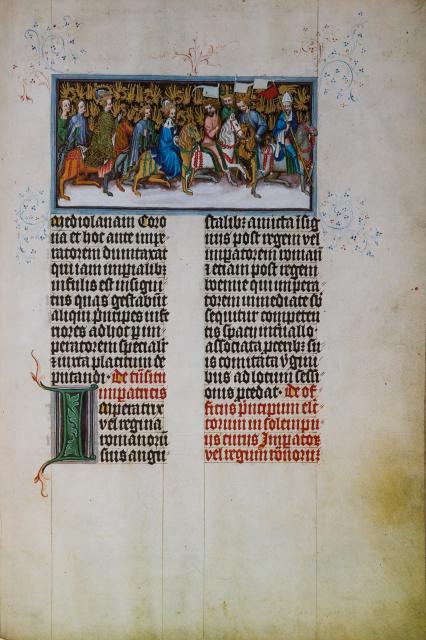 mediolanam Coro
na et hoc ante impe
ratorem dumtaxat
qui iam imperialibus
infulis est insigni
tus quas gestabunt
aliqui principes infe
riores ad hoc per im
peratorem speciali
iuxta placitum de
putandi. De transitu
imperatricis
Imperatrix
vel regina
romanorum
suis augu
stalibus amicta insig
niis post regem vel
imperatorem roman
et etiam post regem
boemie qui impera
torem inmediate sub
sequitur competen
tis spacii interuallo
associata proceribus su
is comitata virgini
bus ad locum sessi
onis procedat. De of
ficiis principum elec
torum in solempni
us curiis Imperator
vel regum romanorum